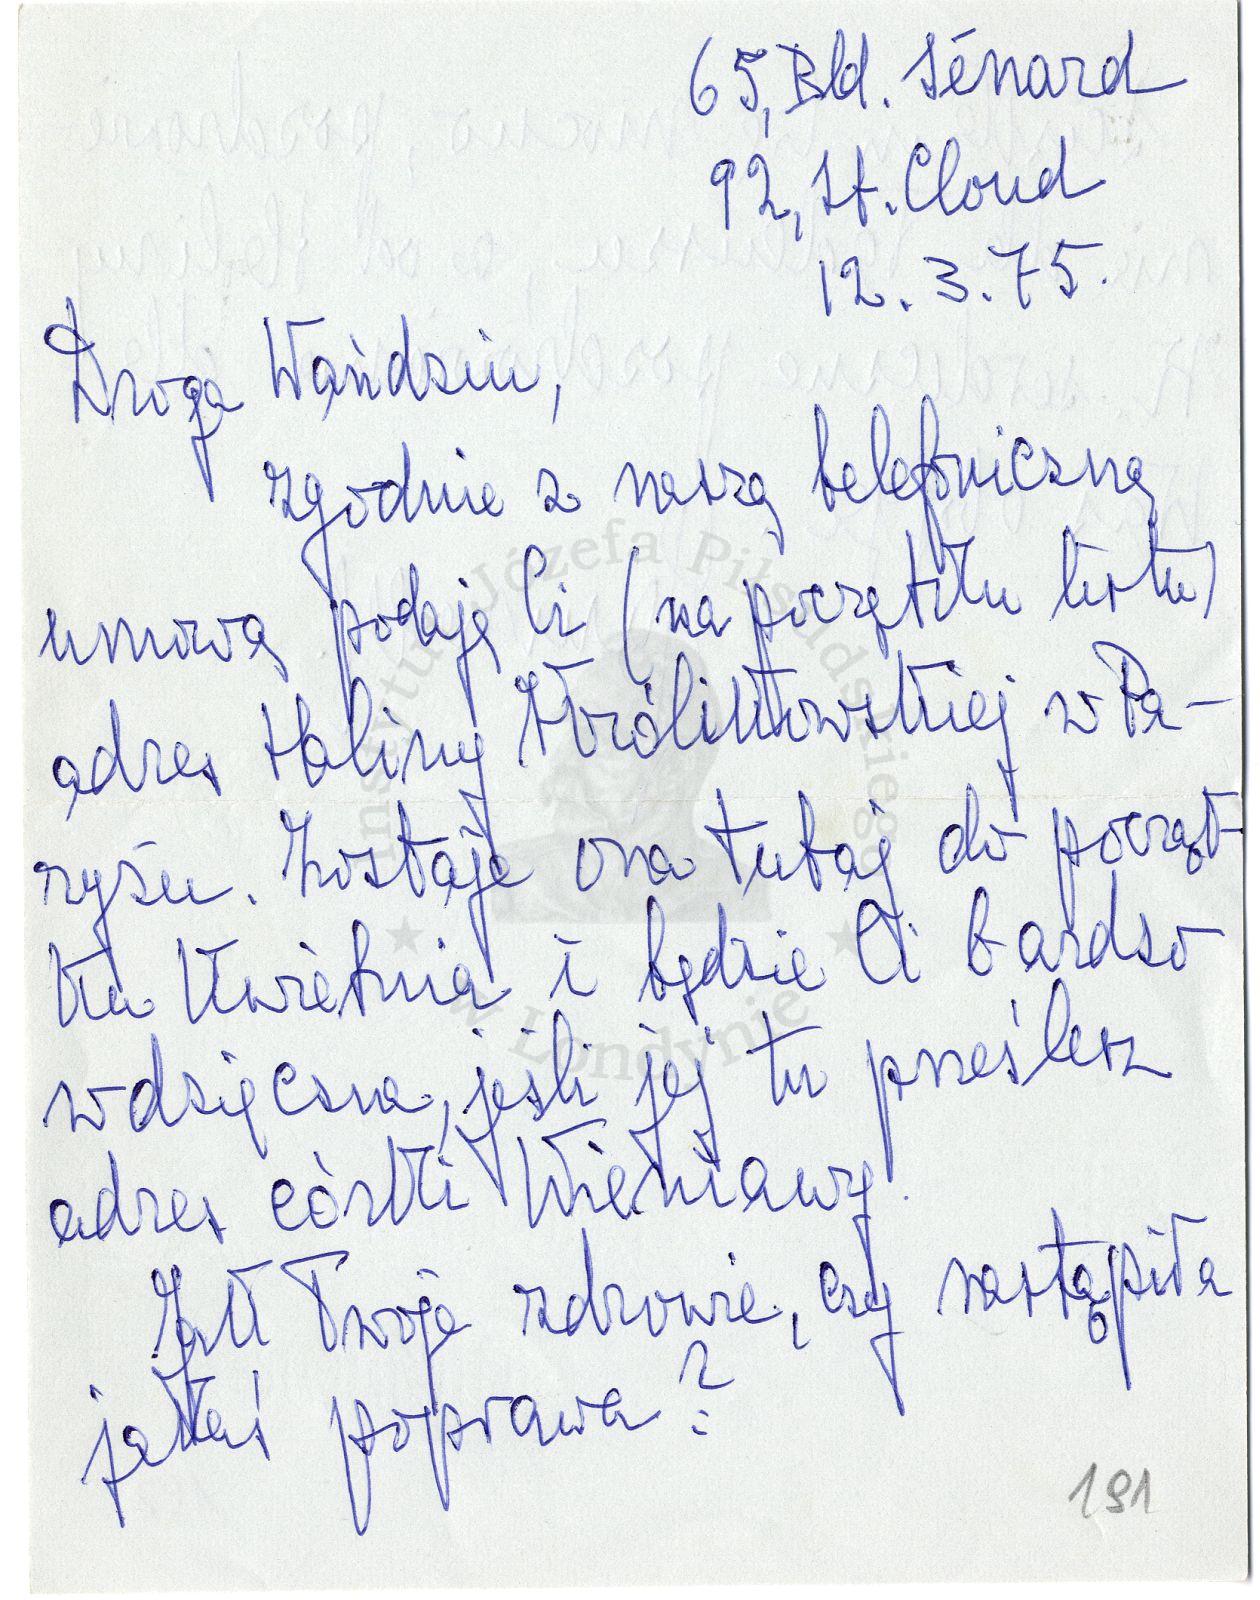 65, Bld. Sénard
92, St. Cloud
12.3.75.
Droga Wańdziu,
zgodnie z naszą telefoniczną
umową podaję Ci (na początku listu)
adres Haliny Królikowskiej w Pa-
ryżu. Zostaje ona tutaj do począt-
ku kwietnia i będzie Ci bardzo
wdzięczna, jeśli jej tu prześlesz
adres córki Wieniawy.
Jak Twoje zdrowie, czy nastąpiła
jakaś poprawa?
191
Instytut Józefa Piłsudskiego
w Londynie